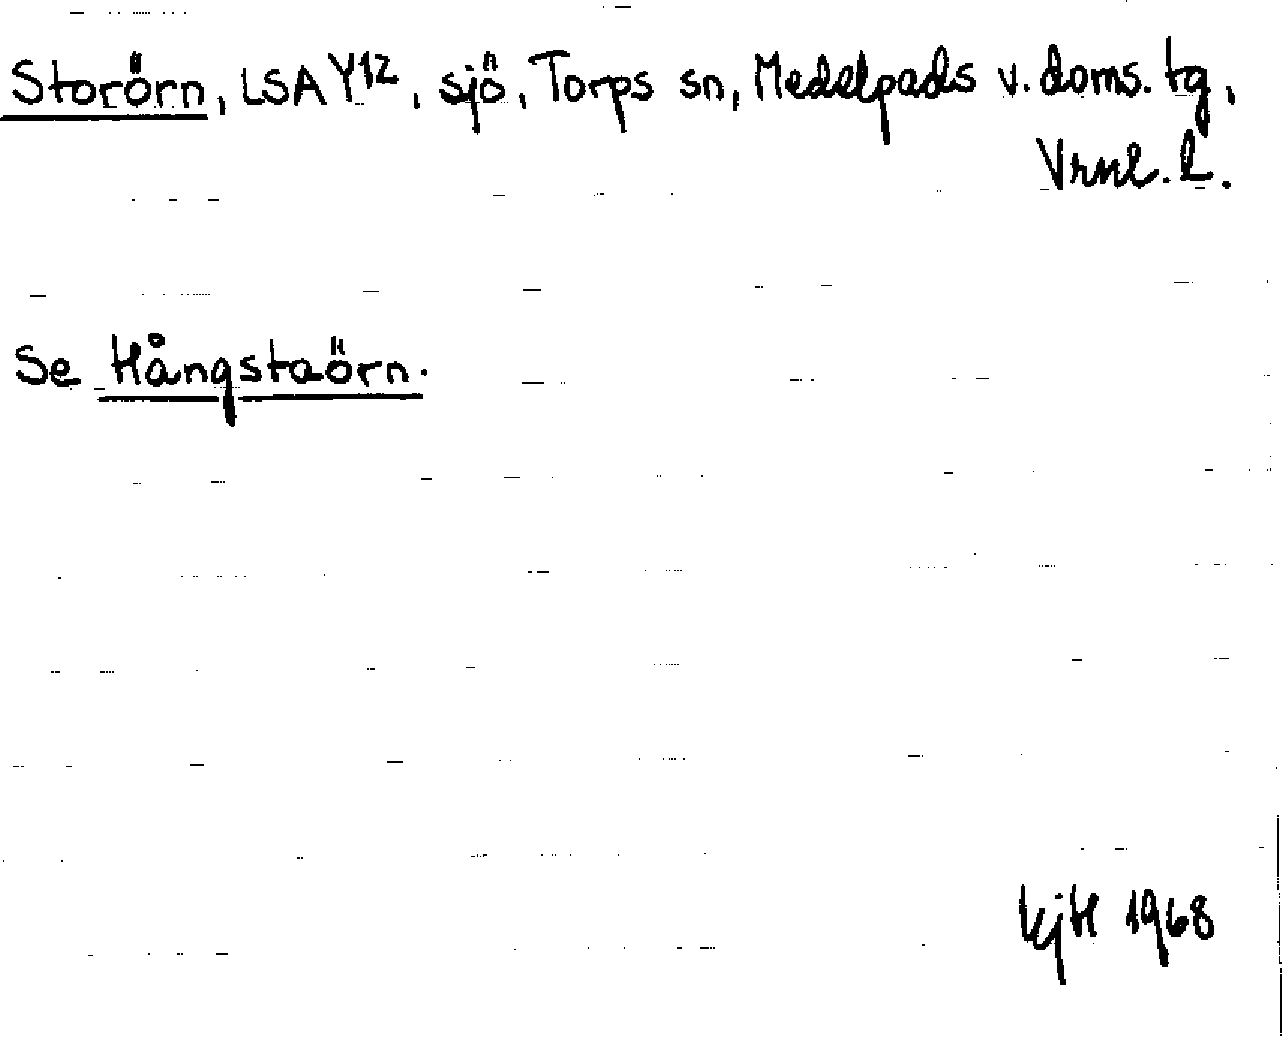 Storörn, LSA Y12, sjö, Torps sn, Medelpads v. doms. tg,
Vrnl. l.
Se Hångstaörn.
KjH 1968